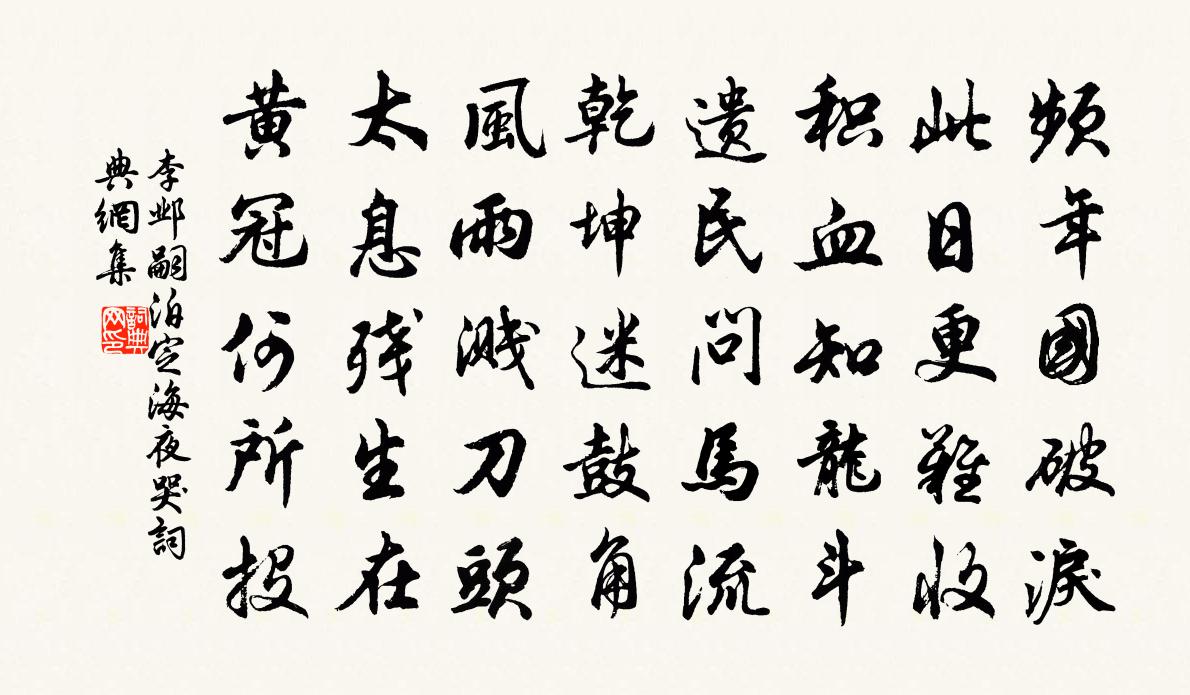 頻年國破淚
此日更難收
积血知龍斗
遺民問馬流
乾坤迷鼓角
風雨溅刀頭
太息残生在
黄冠何所投
李邺嗣泊定海夜哭詞
典網集
詞典
网印